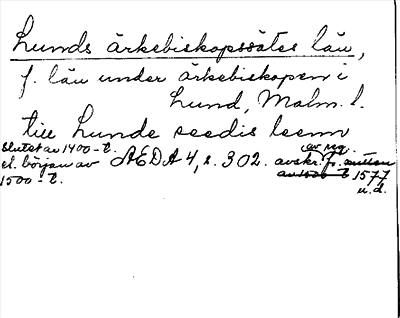 Lunds ärkebiskopssätes län,
f. län under ärkebiskopen i
Lund, Malm. l.
till Lunde seedis leenn
slutet av 1400-t.
el. början av ÆDA 4, s. 302. avskr. fr.
av reg.
1500-t.
1577
u.d.